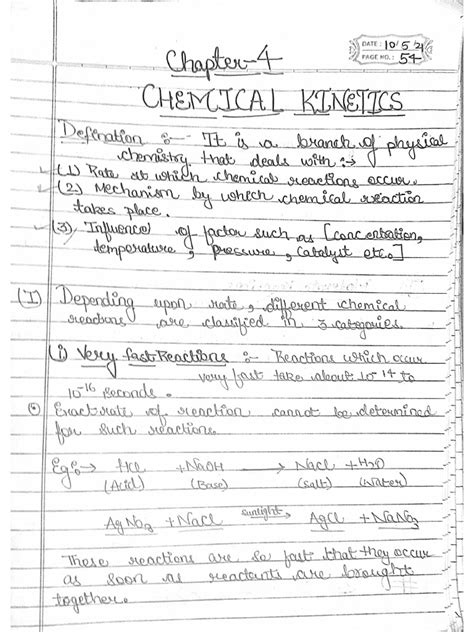 DATE: 10/5/21
PAGE NO.: 54
Chapter-4
CHEMICAL KINETICS
Defination :- It is a branch of physical
chemistry that deals with :→
(1) Rate at which chemical reactions occur.
(2) Mechanism by which chemical reaction
takes place.
(3) Influence of factor such as [concentration,
temperature, pressure, catalyst etc.]
(I) Depending upon rate, different chemical
reactions are classified in 3 categories.
(i) Very fast Reactions :- Reactions which occur
very fast take about 10-14 to
10-16 seconds.
Exact rate of reaction cannot be determined
for such reactions.
Eg:→ HCl + NaOH → NaCl + H2O
(Acid) (Base) (Salt) (Water)
AgNO3 + NaCl sunlight→ AgCl + NaNO3
These reactions are so fast that they occur
as soon as reactants are brought
together.